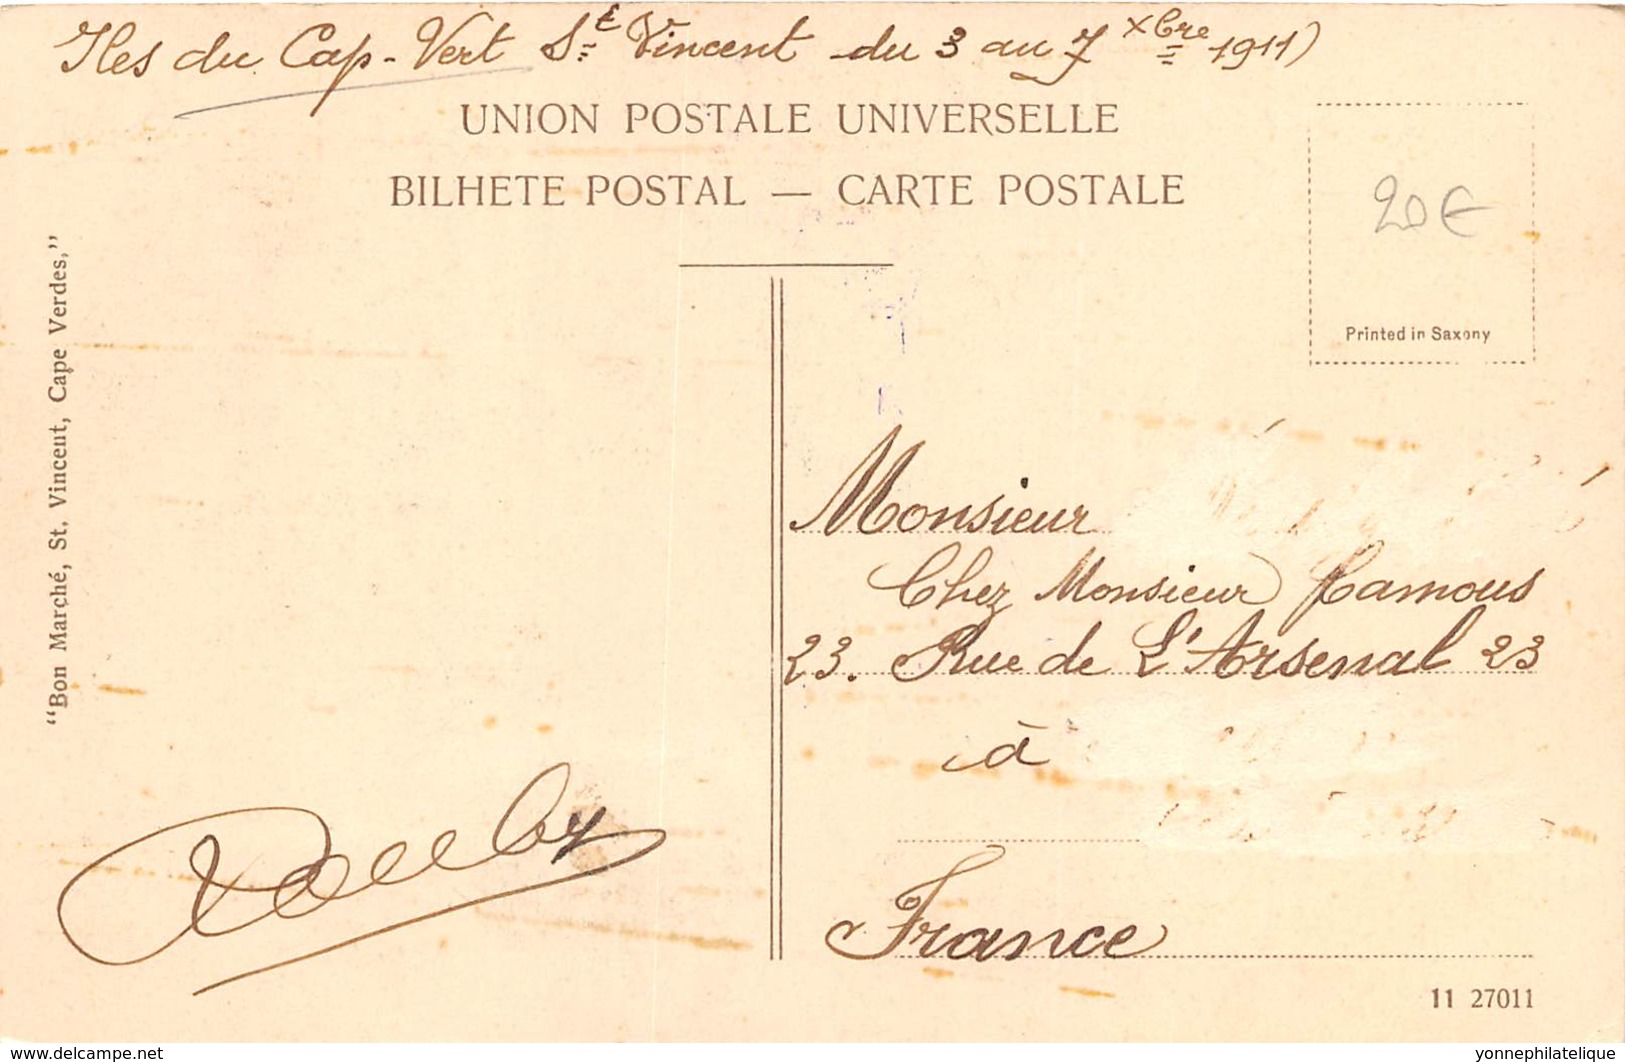 Iles du Cap-Vert St Vincent du 3 au 7 Xbre 1911)
UNION POSTALE UNIVERSELLE
BILHETE POSTAL — CARTE POSTALE
20€
Printed in Saxony
"Bon Marché, St. Vincent, Cape Verdes,"
Monsieur
Chez Monsieur Camous
23. Rue de L'Arsenal 23
à
France
11 27011
www.delcampe.net
yonnephilatelique